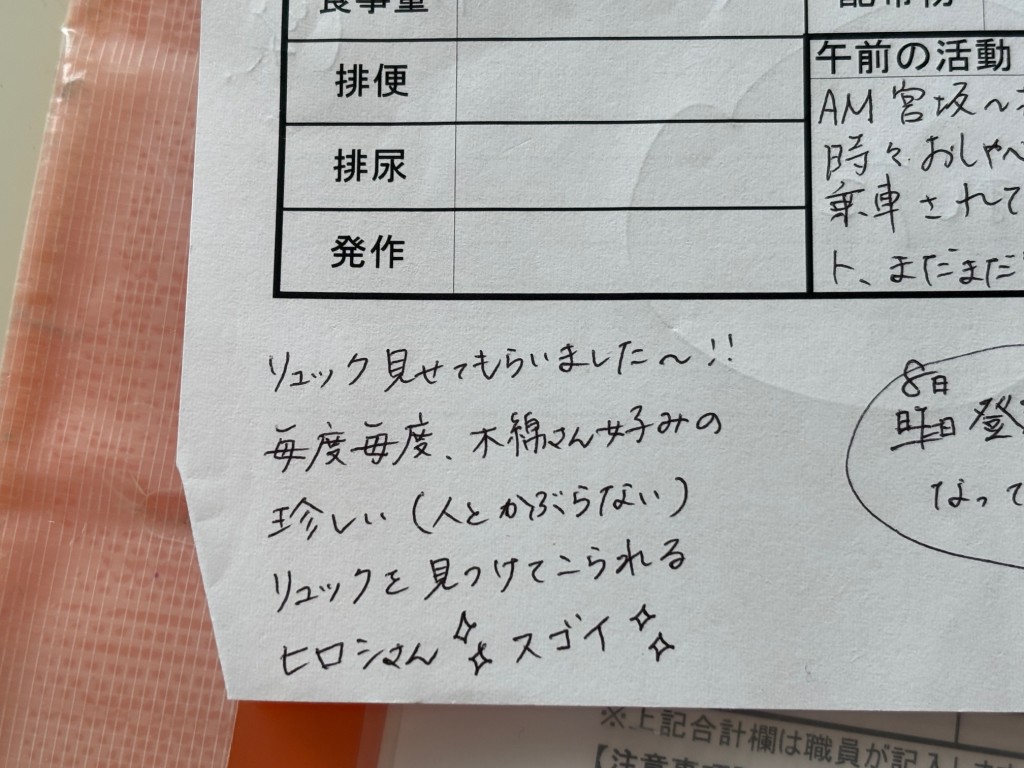 食事量
排便
排尿
発作
午前の活動
AM 宮坂〜
時々おしゃべ
乗車されて
ト、まだまだ
リュック見せてもらいました〜!!
毎度毎度、木綿さん好みの
珍しい(人とかぶらない)
リュックを見つけてこられる
ヒロシさん スゴイ
8日
昨日 登
なって
※上記合計欄は職員が記入しま
【注意事項